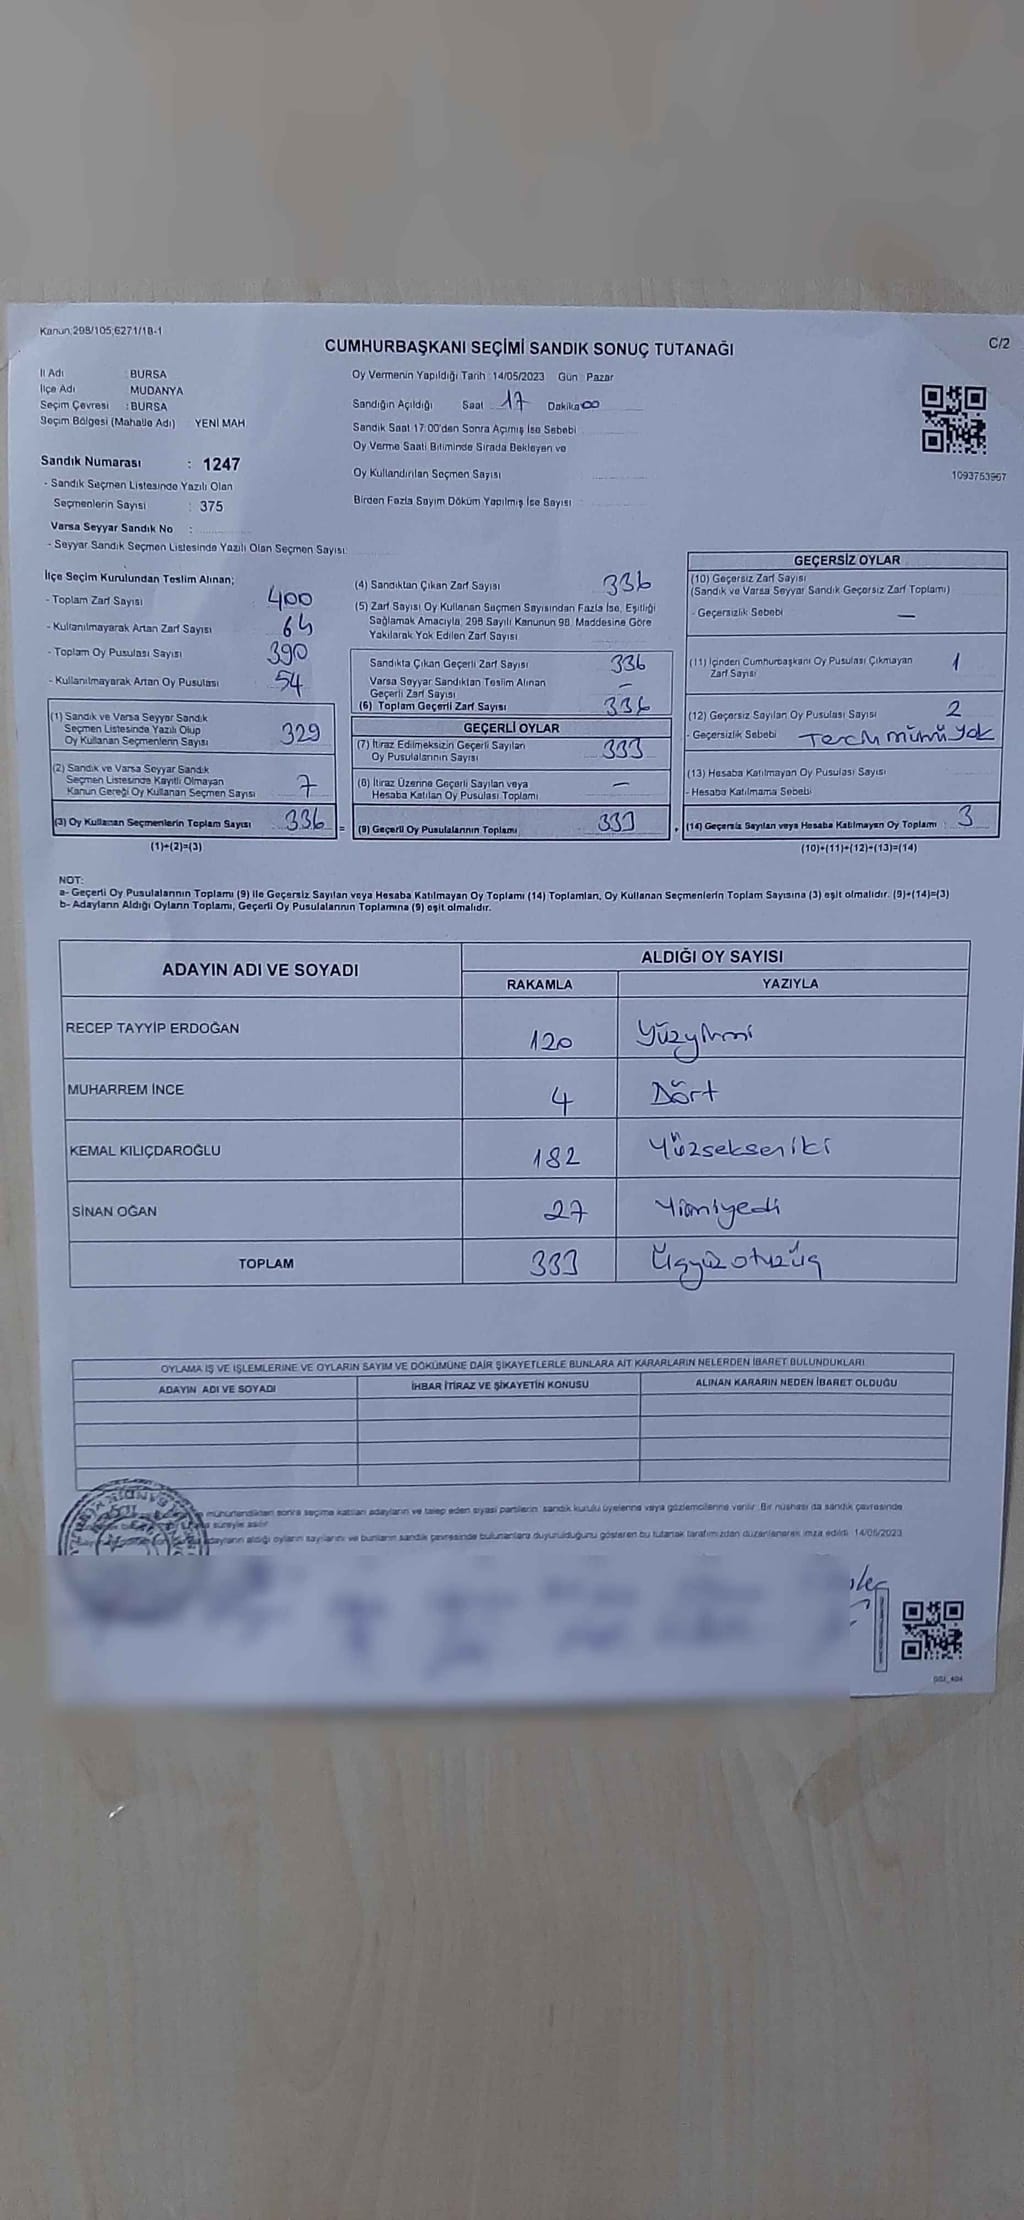 Kanun,298/105,6271/18-1
CUMHURBAŞKANI SEÇİMİ SANDIK SONUÇ TUTANAĞI
C/2
İl Adı BURSA
İlçe Adı MUDANYA
Seçim Çevresi : BURSA
Seçim Bölgesi (Mahalle Adı) YENİ MAH
Oy Vermenin Yapıldığı Tarih 14/05/2023 Gün Pazar
Sandığın Açıldığı Saat 17 Dakika 00
Sandık Saat 17:00'den Sonra Açımış İse Sebebi
Oy Verme Saati Bitiminde Sırada Bekleyen ve
Oy Kullandırılan Seçmen Sayısı
Birden Fazla Sayım Döküm Yapılmış İse Sayısı
1093753967
Sandık Numarası : 1247
- Sandık Seçmen Listesinde Yazılı Olan
Seçmenlerin Sayısı : 375
Varsa Seyyar Sandık No :
- Seyyar Sandık Seçmen Listesinde Yazılı Olan Seçmen Sayısı:
İlçe Seçim Kurulundan Teslim Alınan;
- Toplam Zarf Sayısı 400
- Kullanılmayarak Artan Zarf Sayısı 64
- Toplam Oy Pusulası Sayısı 390
- Kullanılmayarak Artan Oy Pusulası 54
(1) Sandık ve Varsa Seyyar Sandık
Seçmen Listesinde Yazılı Olup
Oy Kullanan Seçmenlerin Sayısı 329
(2) Sandık ve Varsa Seyyar Sandık
Seçmen Listesinde Kayıtlı Olmayan
Kanun Gereği Oy Kullanan Seçmen Sayısı 7
(3) Oy Kullanan Seçmenlerin Toplam Sayısı 336 =
(1)+(2)=(3)
(4) Sandıktan Çıkan Zarf Sayısı 336
(5) Zarf Sayısı Oy Kullanan Seçmen Sayısından Fazla İse, Eşitliği
Sağlamak Amacıyla, 298 Sayılı Kanunun 98. Maddesine Göre
Yakılarak Yok Edilen Zarf Sayısı
Sandıkta Çıkan Geçerli Zarf Sayısı 336
Varsa Seyyar Sandıktan Teslim Alınan
Geçerli Zarf Sayısı –
(6) Toplam Geçerli Zarf Sayısı 336
GEÇERLİ OYLAR
(7) İtiraz Edilmeksizin Geçerli Sayılan
Oy Pusulalarının Sayısı 333
(8) İtiraz Üzerine Geçerli Sayılan veya
Hesaba Katılan Oy Pusulası Toplamı –
(9) Geçerli Oy Pusulalarının Toplamı 333 +
GEÇERSİZ OYLAR
(10) Geçersiz Zarf Sayısı
(Sandık ve Varsa Seyyar Sandık Geçersiz Zarf Toplamı)
- Geçersizlik Sebebi –
(11) İçinden Cumhurbaşkanı Oy Pusulası Çıkmayan
Zarf Sayısı 1
(12) Geçersiz Sayılan Oy Pusulası Sayısı 2
- Geçersizlik Sebebi Tercih mührü Yok
(13) Hesaba Katılmayan Oy Pusulası Sayısı
- Hesaba Katılmama Sebebi
(14) Geçersiz Sayılan veya Hesaba Katılmayan Oy Toplamı : 3
(10)+(11)+(12)+(13)=(14)
NOT:
a- Geçerli Oy Pusulalarının Toplamı (9) ile Geçersiz Sayılan veya Hesaba Katılmayan Oy Toplamı (14) Toplamları, Oy Kullanan Seçmenlerin Toplam Sayısına (3) eşit olmalıdır. (9)+(14)=(3)
b- Adayların Aldığı Oyların Toplamı, Geçerli Oy Pusulalarının Toplamına (9) eşit olmalıdır.
ADAYIN ADI VE SOYADI
ALDIĞI OY SAYISI
RAKAMLA YAZIYLA
RECEP TAYYİP ERDOĞAN 120 Yüzyirmi
MUHARREM İNCE 4 Dört
KEMAL KILIÇDAROĞLU 182 Yüzsekseniki
SİNAN OĞAN 27 Yirmiyedi
TOPLAM 333 Üçyüzotuzüç
OYLAMA İŞ VE İŞLEMLERİNE VE OYLARIN SAYIM VE DÖKÜMÜNE DAİR ŞİKAYETLERLE BUNLARA AİT KARARLARIN NELERDEN İBARET BULUNDUKLARI
ADAYIN ADI VE SOYADI İHBAR İTİRAZ VE ŞİKAYETİN KONUSU ALINAN KARARIN NEDEN İBARET OLDUĞU
mühürlendikten sonra seçime katılan adayların ve talep eden siyasi partilerin sandık kurulu üyelerine veya gözlemcilerine verilir. Bir nüshası da sandık çevresinde
süreyle asılır
adayların aldığı oyların sayılarını ve bunların sandık çevresinde bulunanlara duyurulduğunu gösteren bu tutanak tarafımızdan düzenlenerek imza edildi. 14/05/2023